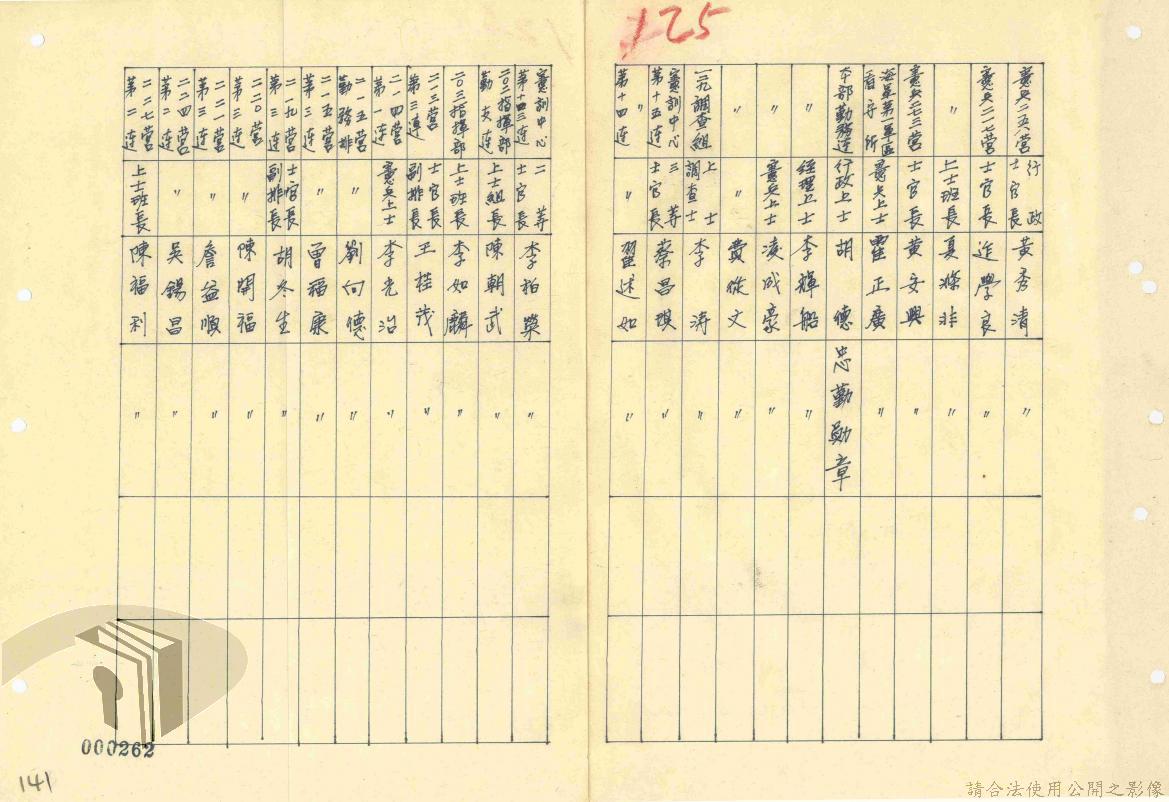 125
憲兵二五八營 行政士官長 黃秀清 〃
憲兵二一七營 士官長 連學良 〃
〃 上士班長 夏滌非 〃
憲兵二七三營 士官長 黃安興 〃
看守所 憲兵上士 瞿正廣 〃
本部勤務連 行政上士 胡德 忠勤勛章
〃 經理上士 李輝船 〃
〃 憲兵上士 凌成豪 〃
〃 〃 費從文 〃
一三九調查組 上士調查士 李濤 〃
憲訓中心第十五連 三等士官長 蔡昌琪 〃
〃第十四連 〃 翟述如 〃
憲訓中心第十四連 二等士官長 李柏榮 〃
二〇二指揮部勤支連 上士組長 陳朝武 〃
二〇三指揮部 上士班長 李如麟 〃
二一三營第三連 士官長副排長 王桂茂 〃
二一四營第一連 憲兵上士 李光治 〃
二一五營勤務排 〃 劉向德 〃
二一五營第三連 〃 曾福康 〃
二一九營第三連 士官長副排長 胡冬生 〃
二二〇營第三連 〃 陳開福 〃
二二一營第三連 〃 詹益順 〃
二二四營第二連 〃 吳錫昌 〃
二二七營第二連 上士班長 陳福利 〃
000262
141
請合法使用公開之影像